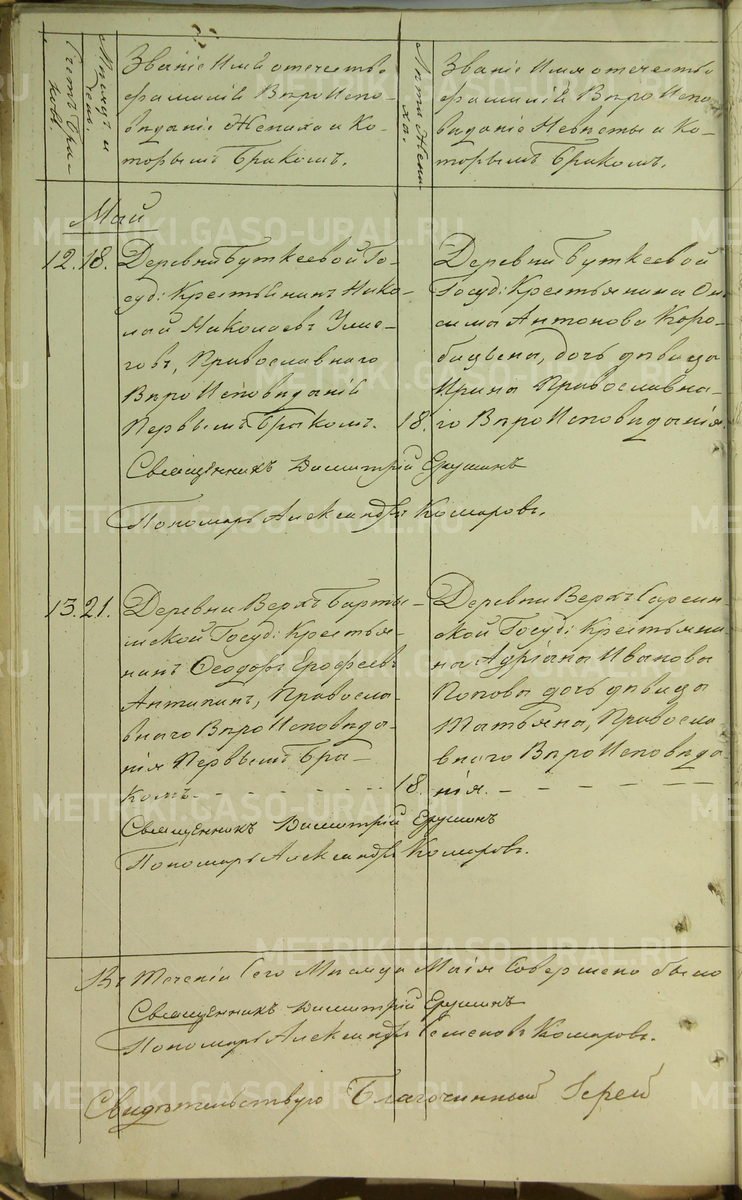 Счетъ Бра-
ков.
Месецъ и
число.
Званіе Имя отечество
фамилій Вѣро Испо-
веданіе Жениха и Ко-
торымъ Бракомъ.
Лета Жени-
ха.
Званіе Имя отечество
фамилій Вѣро Испо-
веданіе Невѣсты и Ко-
торымъ Бракомъ.
Май
12. 18. Деревни Буткеевой Го-
суд: Крестьянинъ Нико-
лай Николаевъ
Православнаго
Вѣро Исповѣданій
Первымъ Бракомъ. 18.
Деревни Буткеевой
Госуд: Крестьянина Они-
сима Антонова Коро-
бицына, дочь дѣвица
Ирина Православна-
го Вѣро Исповѣданія.
Священникъ Димитрій Ерушинъ
Пономарь Александръ Комаровъ.
13. 21. Деревни Верхъ Барты-
мской Госуд: Крестья-
нинъ Ѳеодоръ Ерофеевъ
Антипинъ, Правосла-
внаго Вѣро Исповѣда-
нія Первымъ Бра-
комъ. 18.
Деревни Верхъ Сарсин-
ской Госуд: Крестьяни-
на Адріана Иванова
Попова дочь дѣвица
Татьяна, Правосла-
внаго Вѣро Исповѣда-
нія.
Священникъ Димитрій Ерушинъ
Пономарь Александръ Комаровъ.
Въ теченіи Сего Месяца Маія Совершено было
Священникъ Димитрій Ерушинъ
Пономарь Александръ Семеновъ Комаровъ.
Свидѣтельствую Благочинный Іерей
METRIKI.GASO-URAL.RU